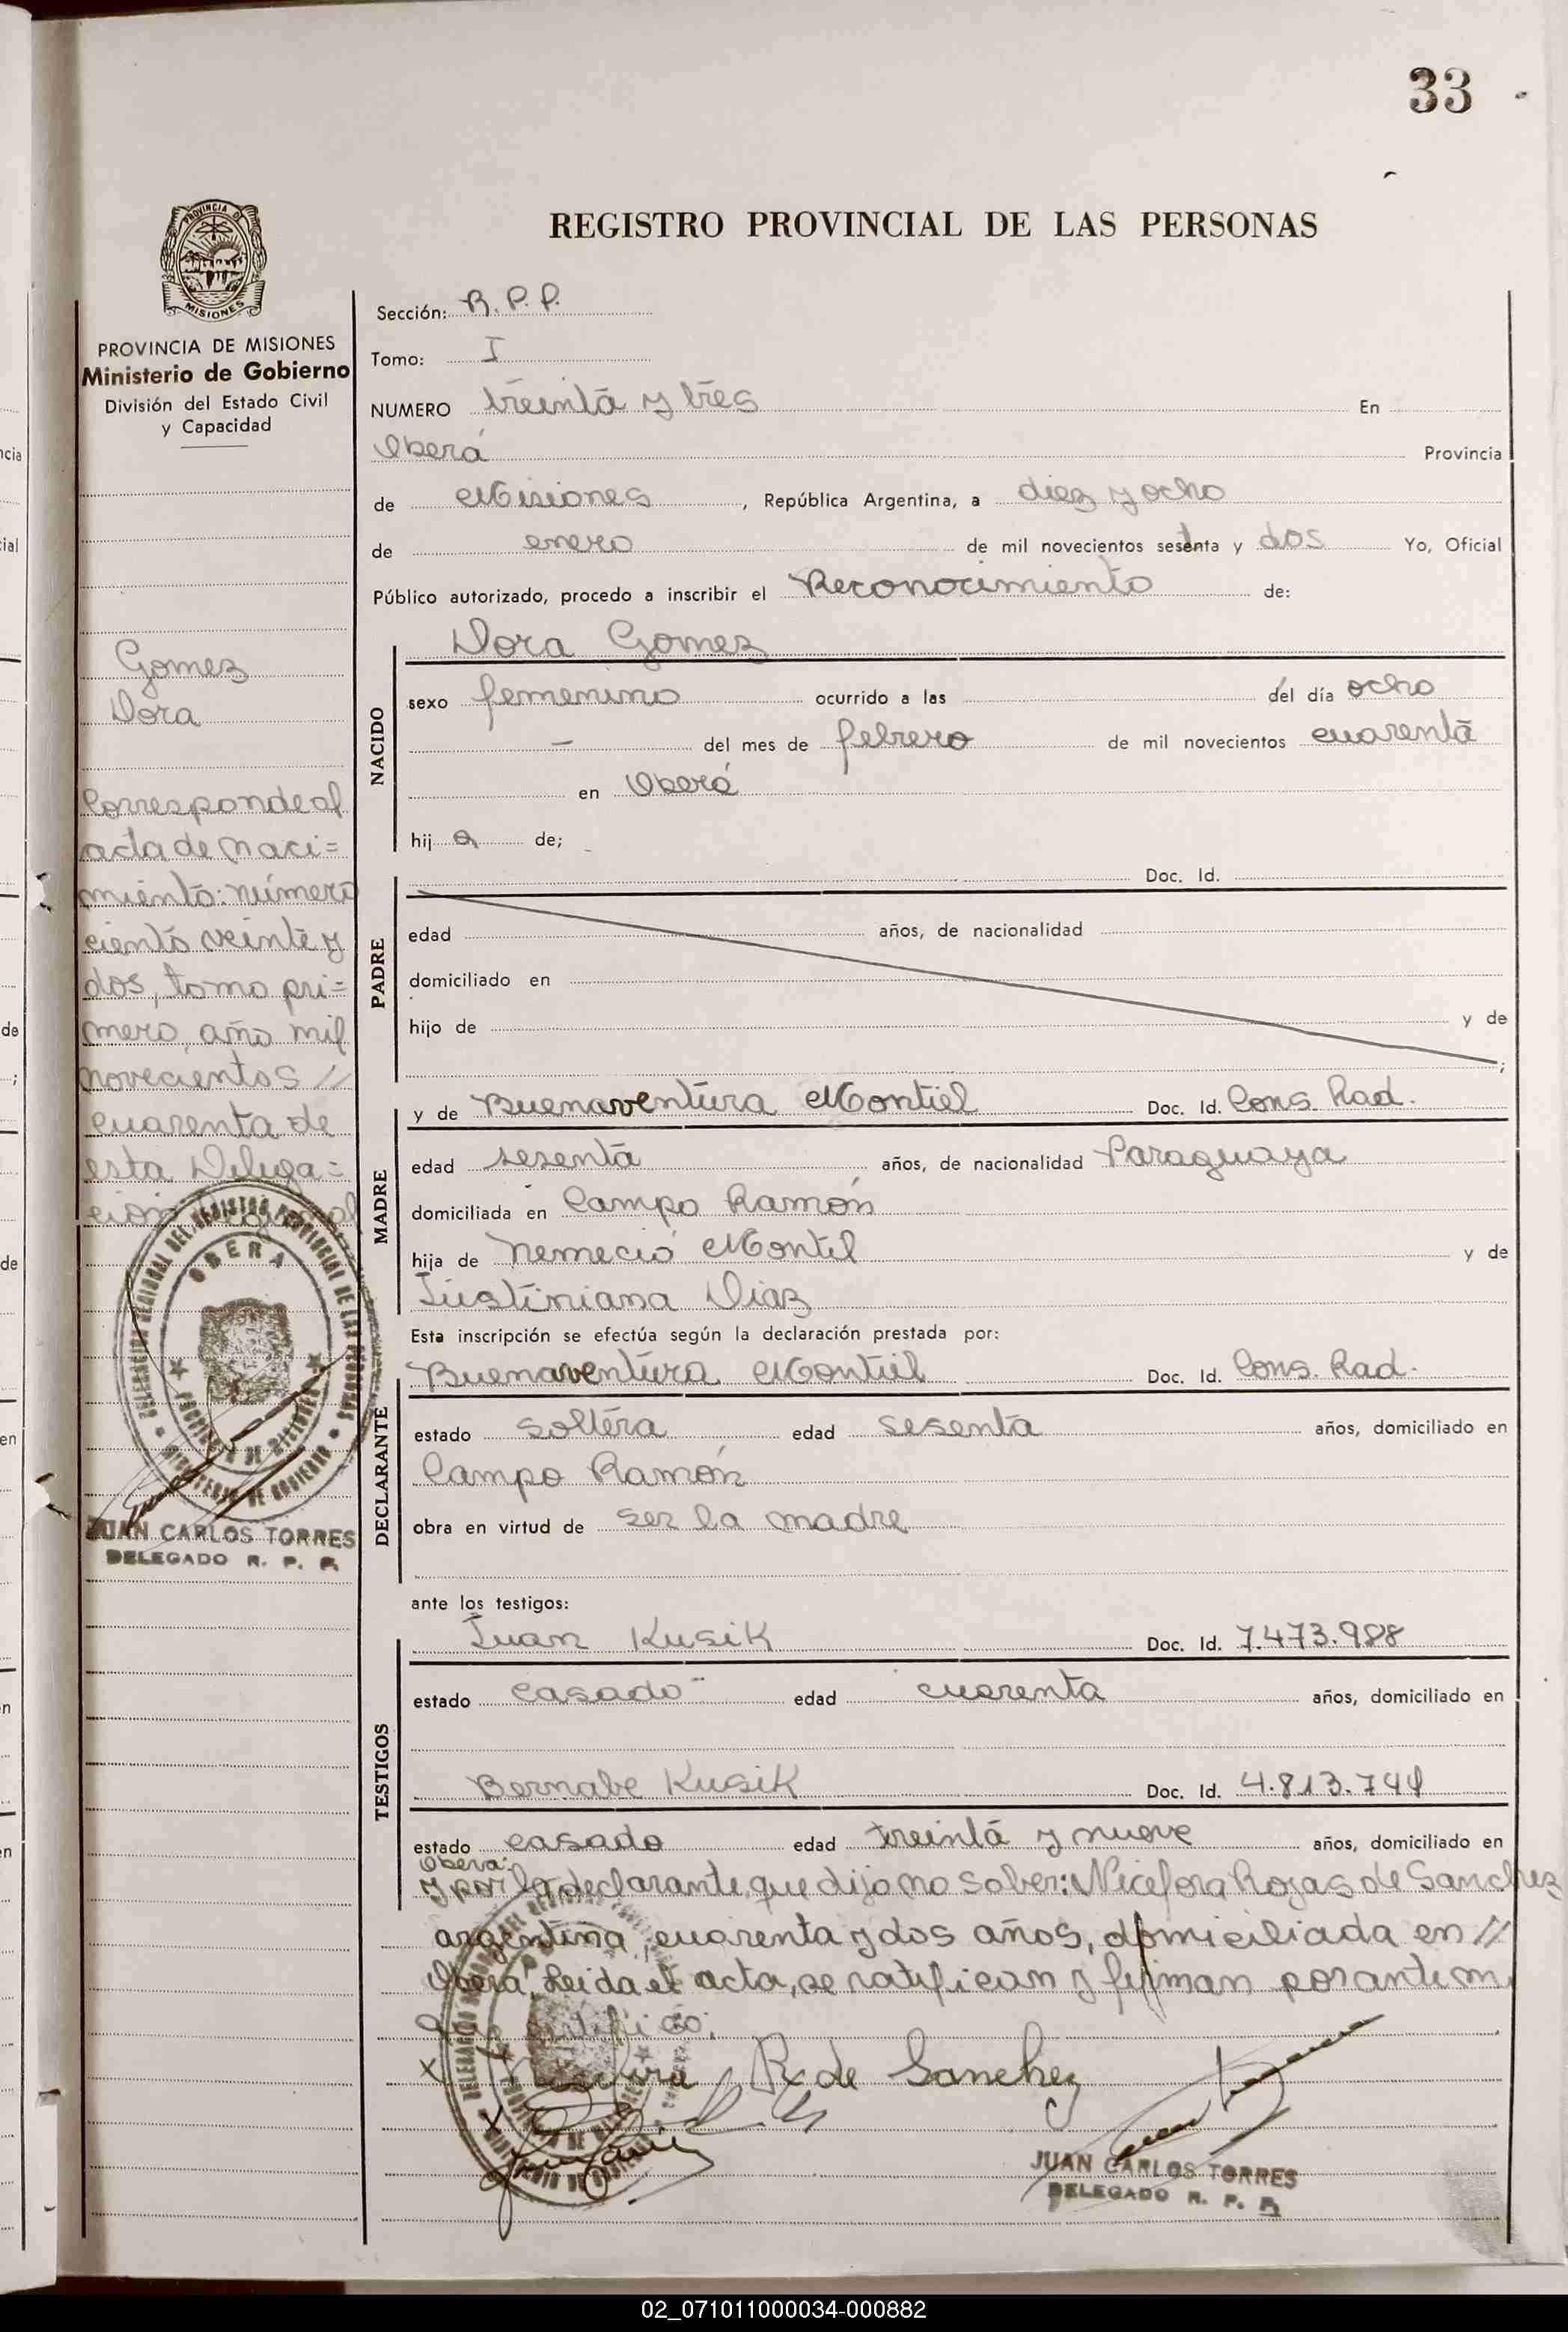 33
REGISTRO PROVINCIAL DE LAS PERSONAS
PROVINCIA DE
MISIONES
PROVINCIA DE MISIONES
Ministerio de Gobierno
División del Estado Civil
y Capacidad
Gomez
Dora
Corresponde al
acta de naci=
miento: número
ciento veinte y
dos, tomo pri=
mero, año mil
novecientos //
cuarenta de
esta Deléga=
ción
OBERA
JUAN CARLOS TORRES
DELEGADO R. P. P.
Sección: R. P. P.
Tomo: I
NUMERO treinta y tres En
Oberá Provincia
de Misiones, República Argentina, a diez y ocho
de enero de mil novecientos setenta y dos Yo, Oficial
Público autorizado, procedo a inscribir el Reconocimiento de:
NACIDO
Dora Gomez
sexo femenino ocurrido a las del día ocho
— del mes de febrero de mil novecientos cuarenta
en Oberá
hij a de;
PADRE
Doc. Id.
edad años, de nacionalidad
domiciliado en
hijo de y de
;
MADRE
y de Buenaventura Montiel Doc. Id. Cons. Rad.
edad sesenta años, de nacionalidad Paraguaya
domiciliada en Campo Ramón
hija de Nemecio Montil y de
Justiniana Diaz
Esta inscripción se efectúa según la declaración prestada por:
DECLARANTE
Buenaventura Montiel Doc. Id. Cons. Rad.
estado soltera edad sesenta años, domiciliado en
Campo Ramón
obra en virtud de ser la madre
ante los testigos:
TESTIGOS
Juan Kusik Doc. Id. 7.473.988
estado casado edad cuarenta años, domiciliado en
Bernabe Kusik Doc. Id. 4.813.744
estado casado edad treinta y nueve años, domiciliado en
Obera.
y por la declarante, que dijo no saber: Nicefora Rojas de Sanchez
argentina, cuarenta y dos años, domiciliada en //
Oberá. Leida el acta, se ratifican y firman por ante mi
que certifico:
x R. de Sanchez
x
JUAN CARLOS TORRES
DELEGADO R. P. P.
02_071011000034-000882